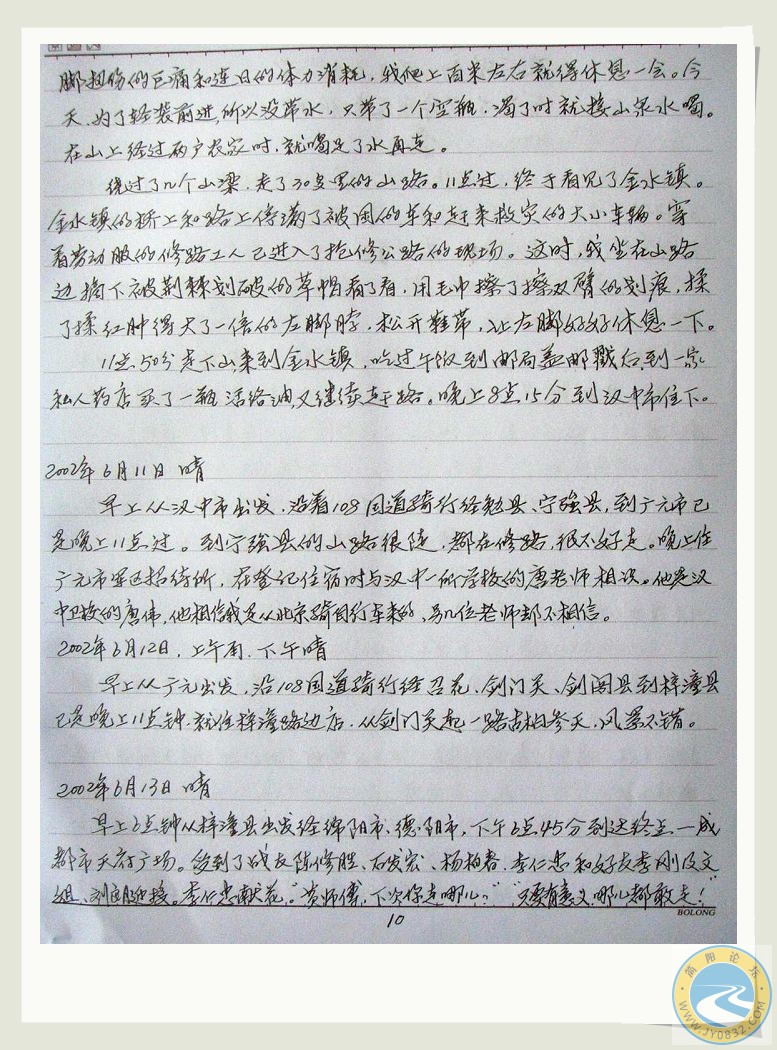 脚扭伤的巨痛和连日的体力消耗，我爬上百米左右就得休息一会。今
天，为了轻装前进，所以没带水，只带了一个空瓶，渴了时就接山泉水喝。
在山上经过两户农家时，就喝足了水再走。
绕过了几个山梁，走了30多里的山路。11点过，终于看见了金水镇。
金水镇的桥上和路上停满了被困的车和赶来救灾的大小车辆。穿
着劳动服的修路工人已进入了抢修公路的现场。这时，我坐在山路
边摘下被荆棘划破的草帽看了看，用毛巾擦了擦双臂的划痕，揉
了揉红肿得大了一倍的左脚脖，松开鞋带，让左脚好好休息一下。
11点50分走下山来到金水镇，吃过午饭到邮局盖邮戳后，到一家
私人药店买了一瓶活络油，又继续赶路。晚上8点15分到汉中市住下。
2002年6月11日 晴
早上从汉中市出发，沿着108国道骑行经勉县、宁强县，到广元市已
是晚上11点过。到宁强县的山路很陡，都在修路，很不好走。晚上住
广元市军区招待所，在登记住宿时与汉中一所学校的唐老师相谈。他是汉
中卫校的唐伟，他相信我是从北京骑自行车来的，另几位老师却不相信。
2002年6月12日，上午雨，下午晴
早上从广元出发，沿108国道骑行经昭化、剑门关、剑阁县到梓潼县
已是晚上11点钟，就住梓潼路边店，从剑门关起一路古柏参天，风景不错。
2002年6月13日 晴
早上6点钟从梓潼县出发经绵阳市、德阳市，下午6点45分到达终点—成
都市天府广场。受到了战友陈修胜、石发宏、杨柏春、李仁忠和好友李刚及文
组、刘朗迎接。李仁忠献花，“黄师傅，下次你走哪儿？”“只要有意义，哪儿都敢走！”
BOLONG
10
简阳论坛
WWW.JY0832.COM